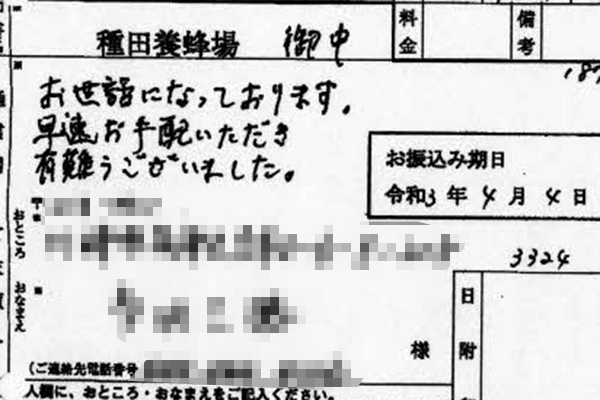 種田養蜂場 御中
料金
備考
お世話になっております。
早速お手配いただき
有難うございました。
お振込み期日
令和3年4月4日
おところ
おなまえ
3324
日附
様
(ご連絡先電話番号
人欄に、おところ・おなまえをご記入ください。